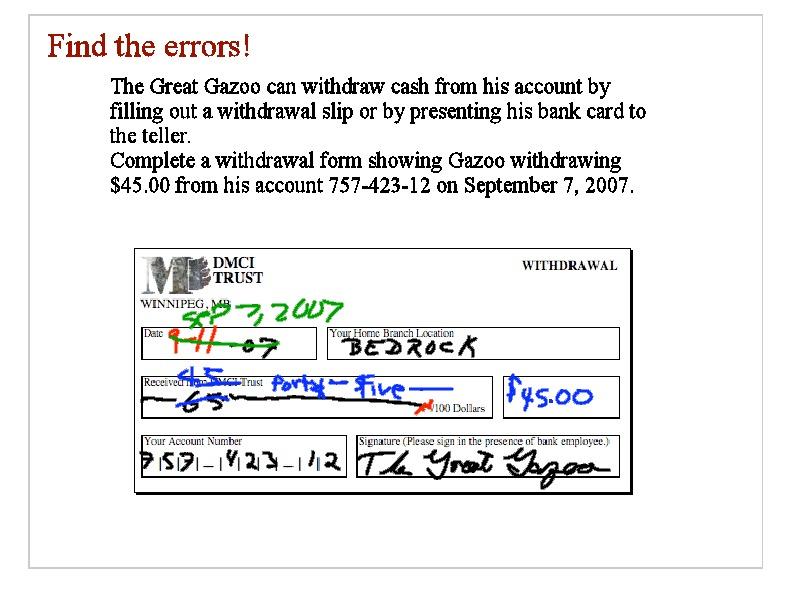 Find the errors!
The Great Gazoo can withdraw cash from his account by
filling out a withdrawal slip or by presenting his bank card to
the teller.
Complete a withdrawal form showing Gazoo withdrawing
$45.00 from his account 757-423-12 on September 7, 2007.
DMCI
TRUST
WITHDRAWAL
WINNIPEG, MB
Sep 7, 2007
Date
9-11 07
Your Home Branch Location
BEDROCK
Received from DMCI Trust
45
Forty - Five
65
/100 Dollars
$45.00
Your Account Number
757-423-12
Signature (Please sign in the presence of bank employee.)
The Great Gazoo